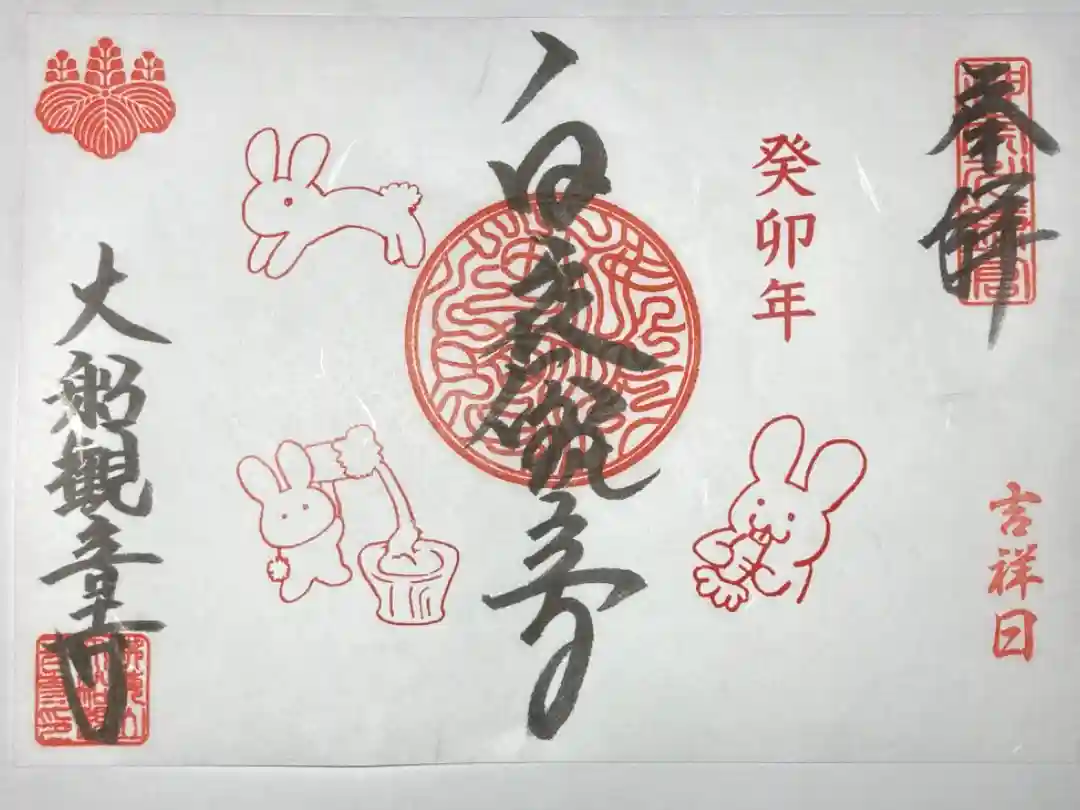 奉拝
癸卯年
吉祥日
白衣観音
大船観音寺